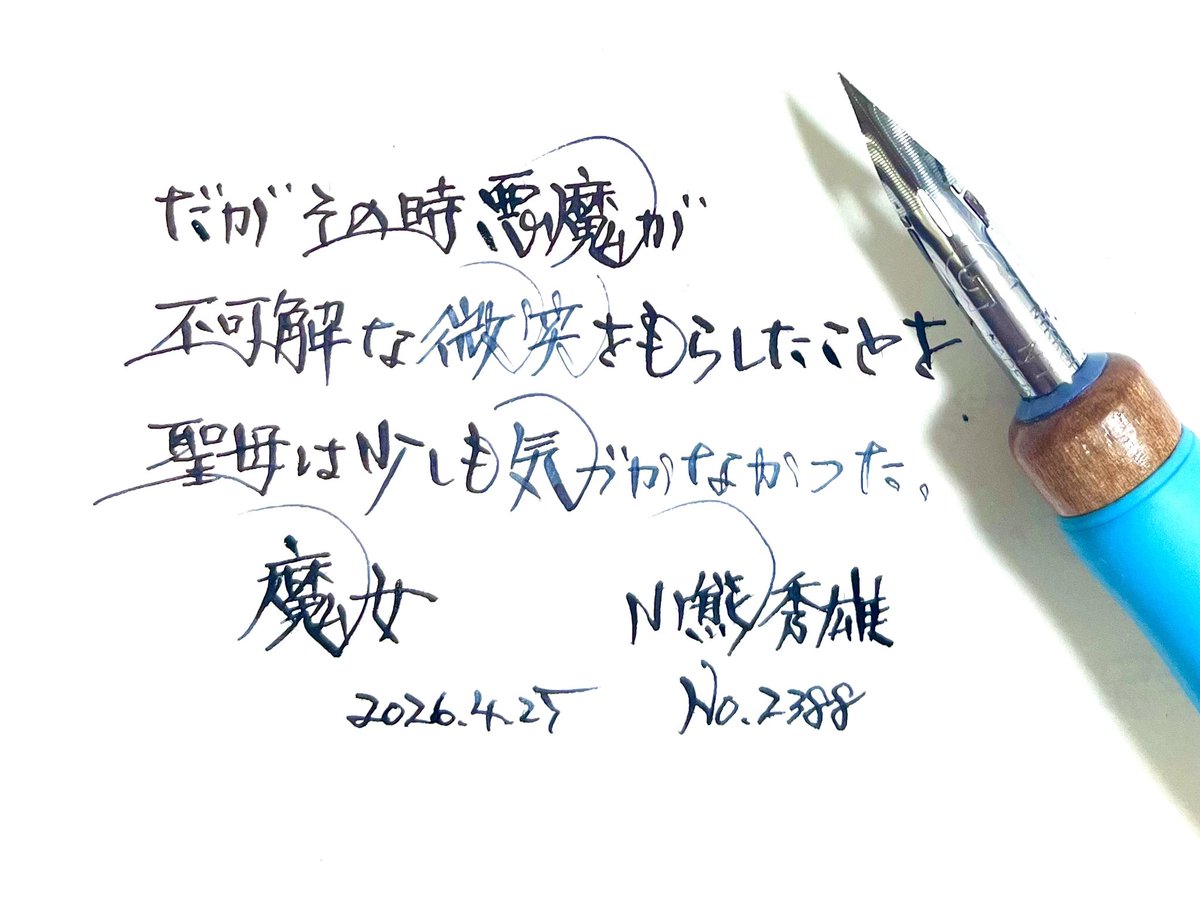 だがその時悪魔が
不可解な微笑をもらしたことを
聖母は少しも気がつかなかった。
魔女 小熊秀雄
2026.4.25 No.2388
G